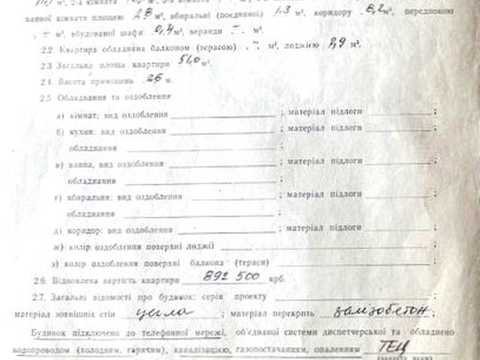 ванної кімнати площею 2,8 м², вбиральні (поєднаної) 1,3 м², коридору 8,2 м², передпокою
м², вбудованої шафи 0,4 м², веранди — м².
2.2. Квартира обладнана балконом (терасою) — м², лоджією 2,9 м².
2.3. Загальна площа квартири 51,0 м².
2.4. Висота приміщень 2,6 м.
2.5. Обладнання та оздоблення
а) кімнат: вид оздоблення ; матеріал підлоги ;
б) кухня: вид оздоблення ; матеріал підлоги
обладнання ;
в) ванна, вид оздоблення ; матеріал підлоги
обладнання ;
г) вбиральня: вид оздоблення ; матеріал підлоги
обладнання ;
д) коридор: вид оздоблення ; матеріал підлоги ;
ж) колір оздоблення поверхні лоджії ;
з) колір оздоблення поверхні балкона (тераси)
2.6. Відновлена вартість квартири 892 500 крб.
2.7. Загальні відомості про будинок: серія проекту ;
матеріал зовнішніх стін цегла ; матеріал перекрить залізобетон
Будинок підключено до телефонної мережі, об'єднаної системи диспетчерської та обладнано
водопроводом (холодним, гарячим), каналізацією, газопостачанням, опаленням ТЕЦ